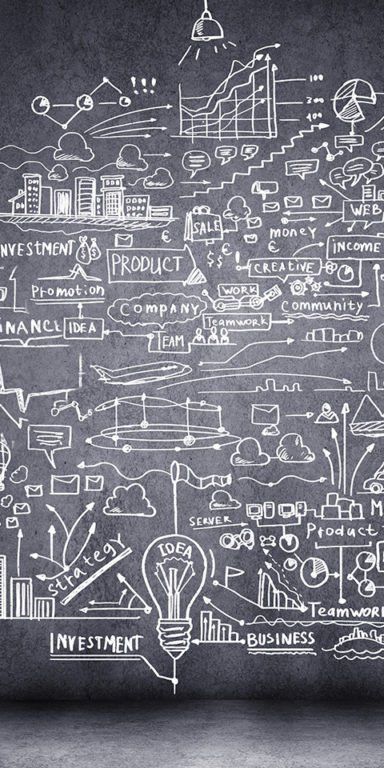 !!!
100
200
400
WEB
SALE
€
money
€
€
INCOME
NVESTMENT
PRODUCT
$$
CREATIVE
Promotion
WORK
COMPANY
Community
INANCE
IDEA
Teamwork
TEAM
SERVER
M
Product
IDEA
strategy
Teamwork
INVESTMENT
BUSINESS